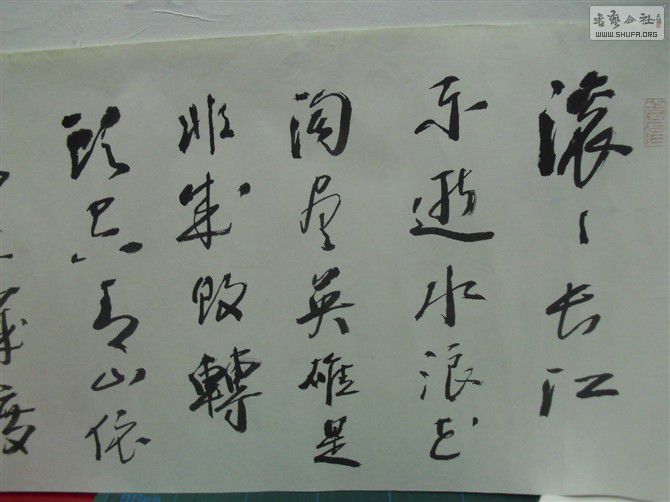 書藝公社
WWW.SHUFA.ORG
滚々长江
东逝水浪花
淘尽英雄是
非成败轉
头空青山依
幾度